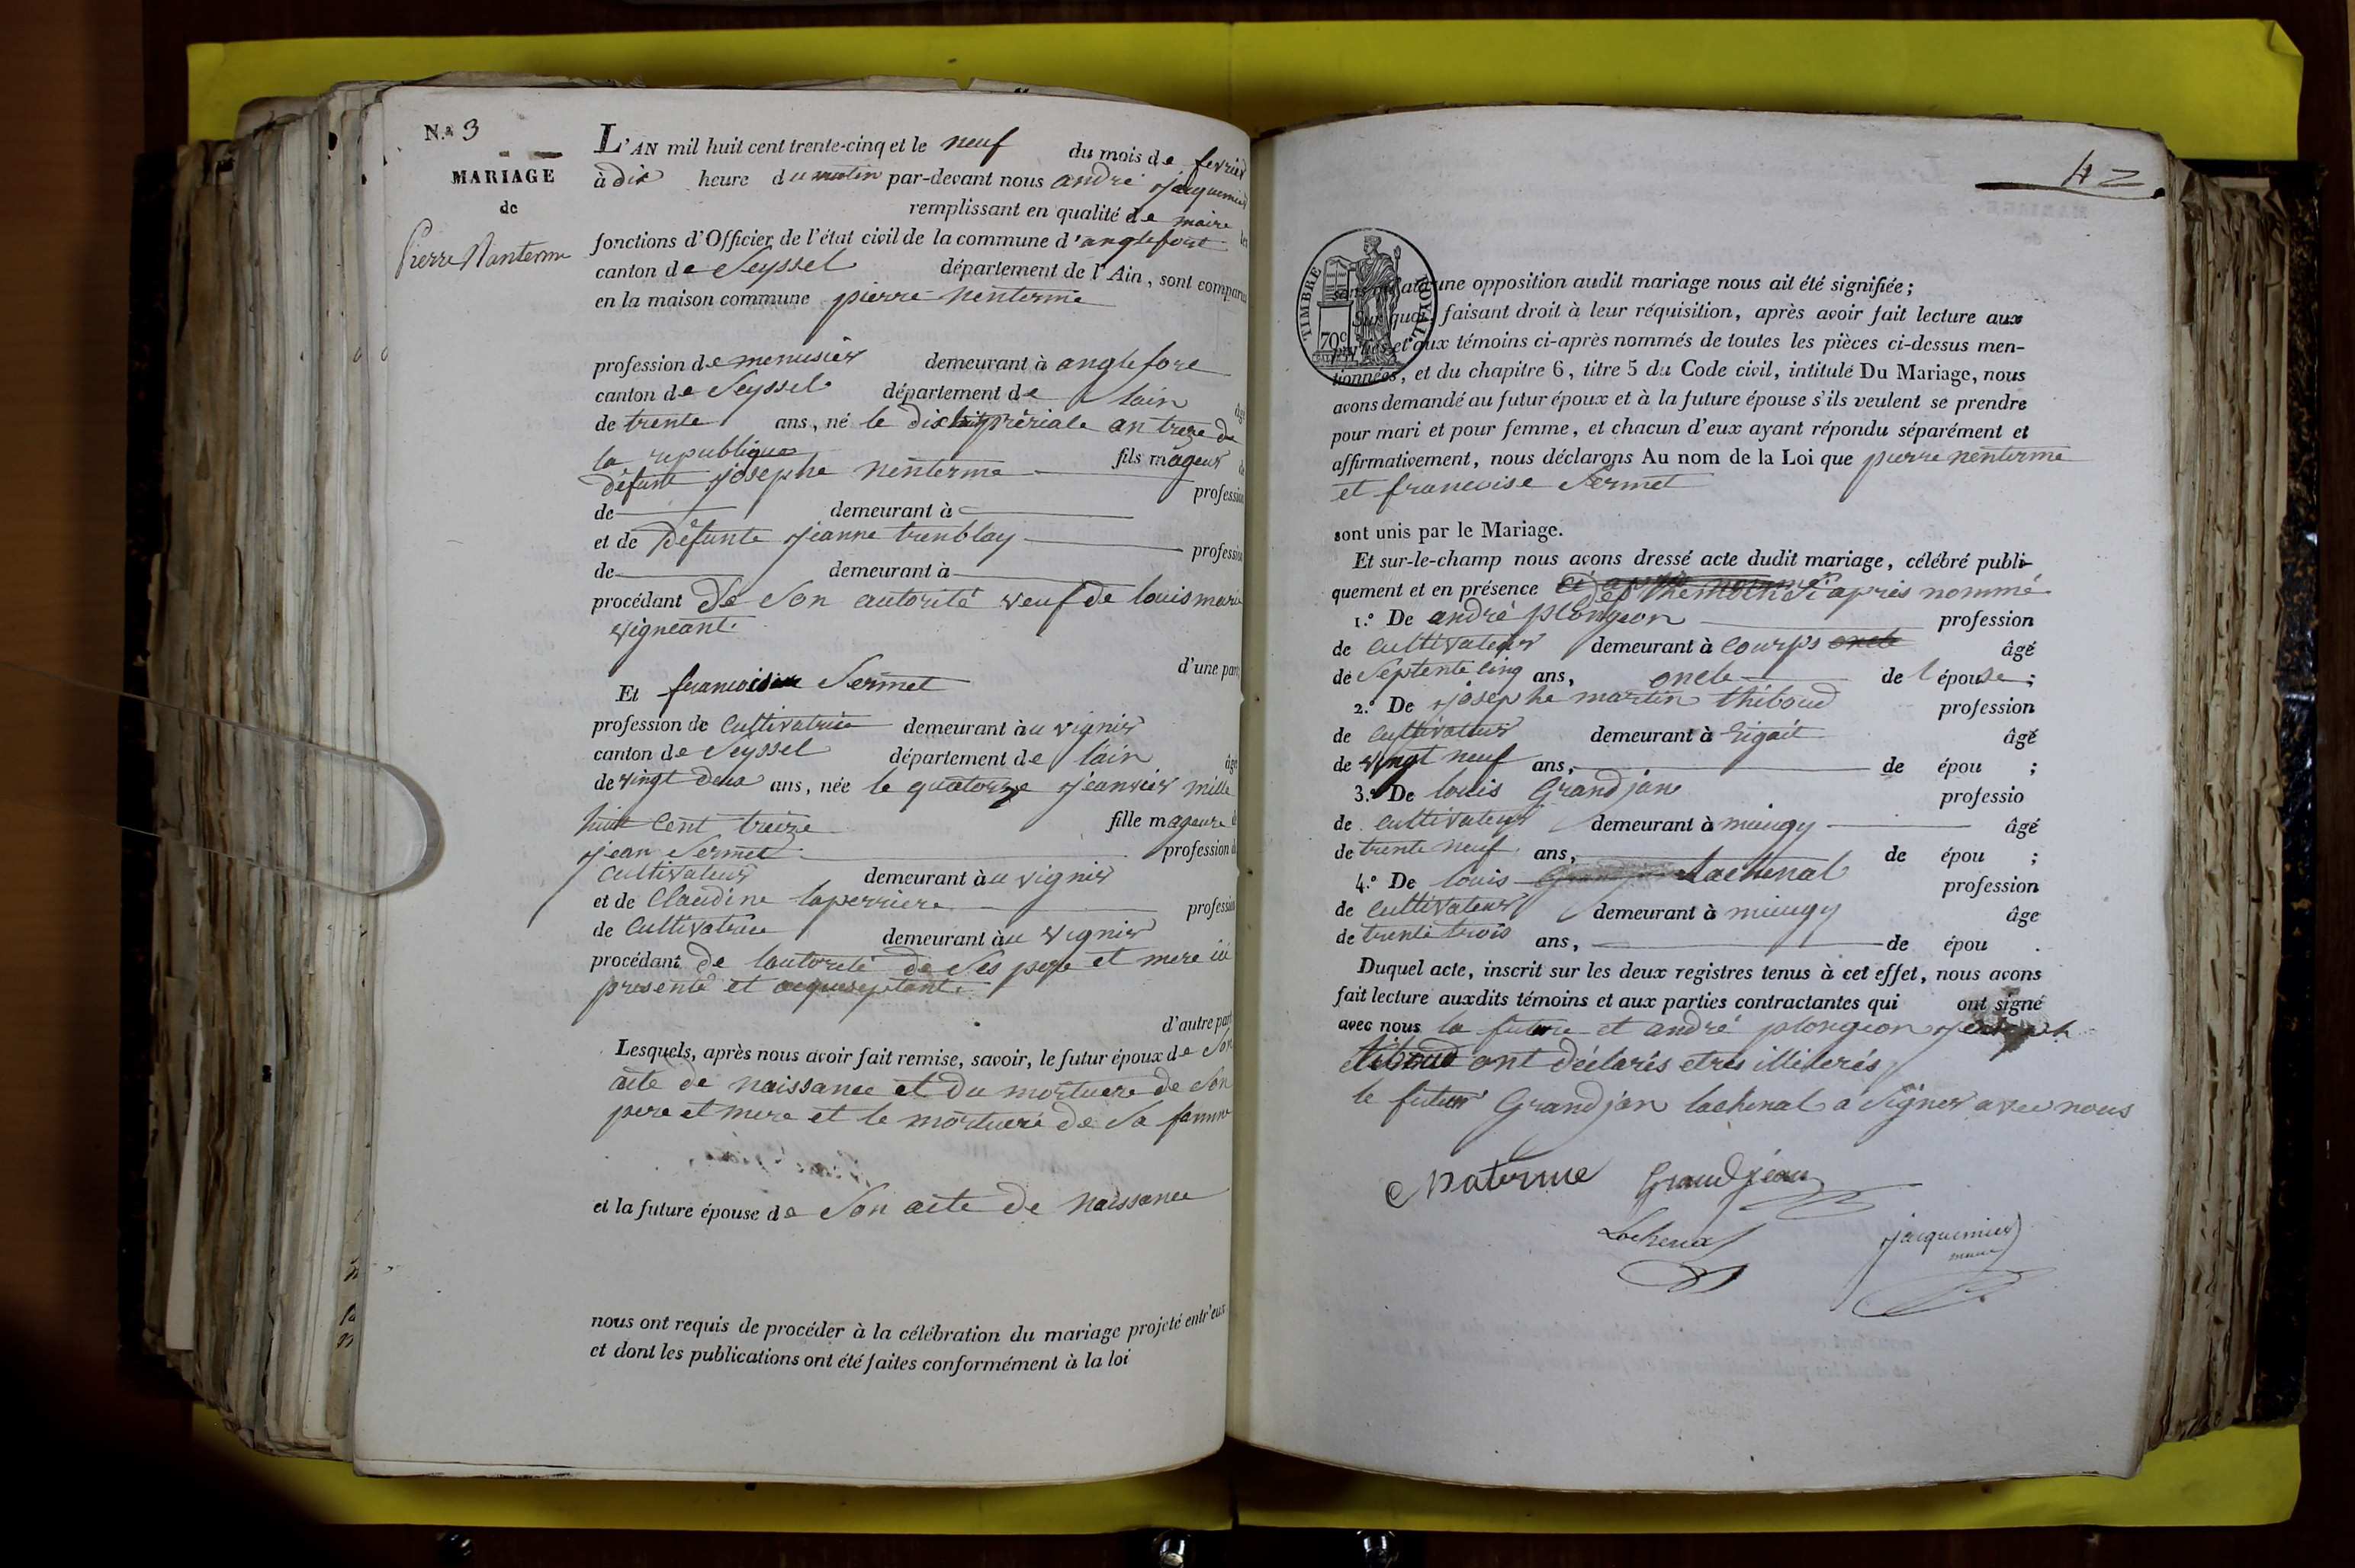 N.o 3
MARIAGE
de
Pierre Nanterme
L'AN mil huit cent trente-cinq et le neuf du mois de fevrier
à dix heure du matin par-devant nous andré jacquemier
remplissant en qualité de maire les
fonctions d'Officier de l'état civil de la commune d'anglefort
canton de Seyssel département de l'Ain, sont comparus
en la maison commune pierre nenterme
profession de menusier demeurant à anglefore
canton de Seyssel département de lain âgé
de trente ans, né le dix preriale an treze de
la republique fils mageur de
défunt josephe nenterme profession
de demeurant à
et de défunte jeanne tremblay profession
de demeurant à
procédant de son autorité veuf de louis marie
vigneant
d'une part
Et francoise Sermet
profession de Cultivatrice demeurant àu vignier
canton de Seyssel département de lain âgé
de vingt deux ans, née le quatorze jeanvier mille
huit Cent treize fille mageure de
jean Sermet profession de
Cultivateur demeurant àu vignier
et de Claudine laperriere profession
de Cultivatrice demeurant àu vignier
procédant de lautorité de Ses pere et mere ici
presente et
d'autre part
Lesquels, après nous avoir fait remise, savoir, le futur époux de Son
acte de naissance et du mortuere de Son
pere et mere et le mortuere de Sa famme
et la future épouse de Son acte de naissance
nous ont requis de procéder à la célébration du mariage projeté entr'eux
et dont les publications ont été faites conformément à la loi
42
TIMBRE ROYAL
70c
sans qu'aucune opposition audit mariage nous ait été signifiée;
Sur quoi, faisant droit à leur réquisition, après avoir fait lecture aux
parties et aux témoins ci-après nommés de toutes les pièces ci-dessus men-
tionnées, et du chapitre 6, titre 5 du Code civil, intitulé Du Mariage, nous
avons demandé au futur époux et à la future épouse s'ils veulent se prendre
pour mari et pour femme, et chacun d'eux ayant répondu séparément et
affirmativement, nous déclarons Au nom de la Loi que pierre nenterme
et francoise Sermet
sont unis par le Mariage.
Et sur-le-champ nous avons dressé acte dudit mariage, célébré publi-
quement et en présence après nommé
1.o De andré plongeon profession
de Cultivateur demeurant à Courps oncle âgé
de Septente Cinq ans, oncle de l'épouse;
2.o De josephe martin thiboud profession
de Cultivateur demeurant à âgé
de vingt neuf ans, de épou ;
3.o De louis Grand jane professio
de cultivateur demeurant à mieugy âgé
de trente neuf ans, de épou ;
4.o De louis Lachenal profession
de Cultivateur demeurant à mieugy âge
de trente trois ans, de épou .
Duquel acte, inscrit sur les deux registres tenus à cet effet, nous avons
fait lecture auxdits témoins et aux parties contractantes qui ont signé
avec nous la future et andré plongeon
thiboud ont déclarés etres illiterés
le futeur Grand jan lachenal a Signer avec nous
Naterme Grandjean
Lachenal jacquemier
maire